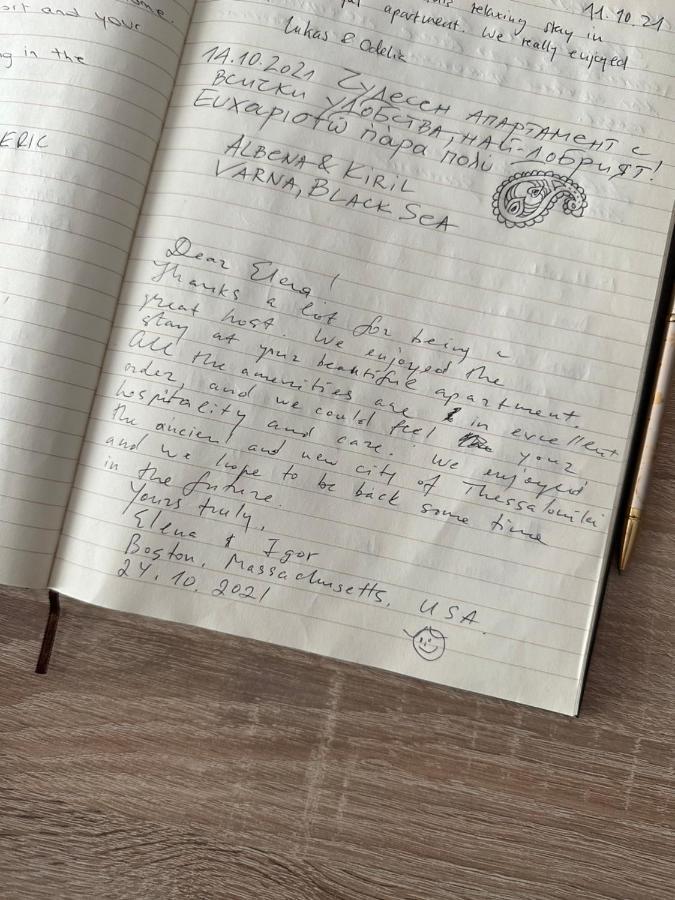 ort and your
ng in the
ERIC
11.10.21
relaxing stay in
apartment. We really enjoyed
Lukas & Odelie
14.10.2021 Чудесен апартамент с
всички удобства, най-добрият!
Ευχαριστώ πάρα πολύ
ALBENA & KIRIL
VARNA, BLACK SEA
Dear Elena!
Thanks a lot for being a
great host. We enjoyed the
stay at your beautiful apartment.
All the amenities are in excellent
order, and we could feel your
hospitality and care. We enjoyed
the ancient and new city of Thessaloniki
and we hope to be back some time
in the future.
Yours truly,
Elena & Igor
Boston, Massachusetts, USA.
24.10.2021